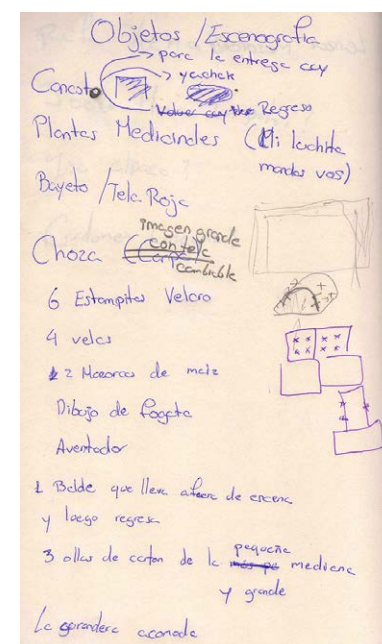 Objetos / Escenografia
→ para la entrega cuy
→ yachak
Canasto
Volver cuy Regreso
Plantas Medicinales (Mi luchita
mandas vos)
Bayeta / Tela Roja
imagen grande
con tela
Choza (Carpa)
cambiable
6 Estampitas Velcro
4 velas
2 Mazorcas de maiz
Dibujo de fogata
Aventador
1 Balde que lleva afuera de escena
y luego regresa
3 ollas de carton de la pequeña mediana
y grande